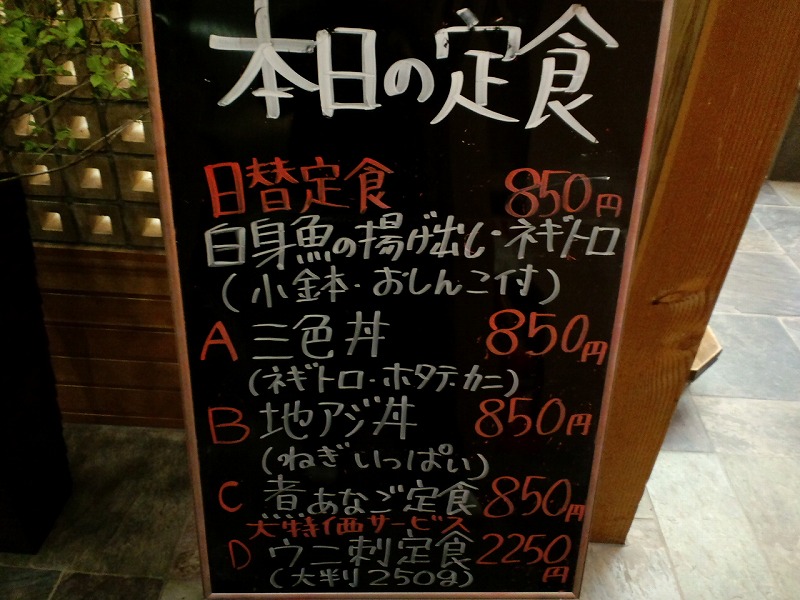 本日の定食
日替定食 850円
白身魚の揚げ出し・ネギトロ
(小鉢・おしんこ付)
A 三色丼 850円
(ネギトロ・ホタテ・カニ)
B 地アジ丼 850円
(ねぎいっぱい)
C 煮あなご定食 850円
大特価サービス
D ウニ刺定食 2250円
(大判250g)